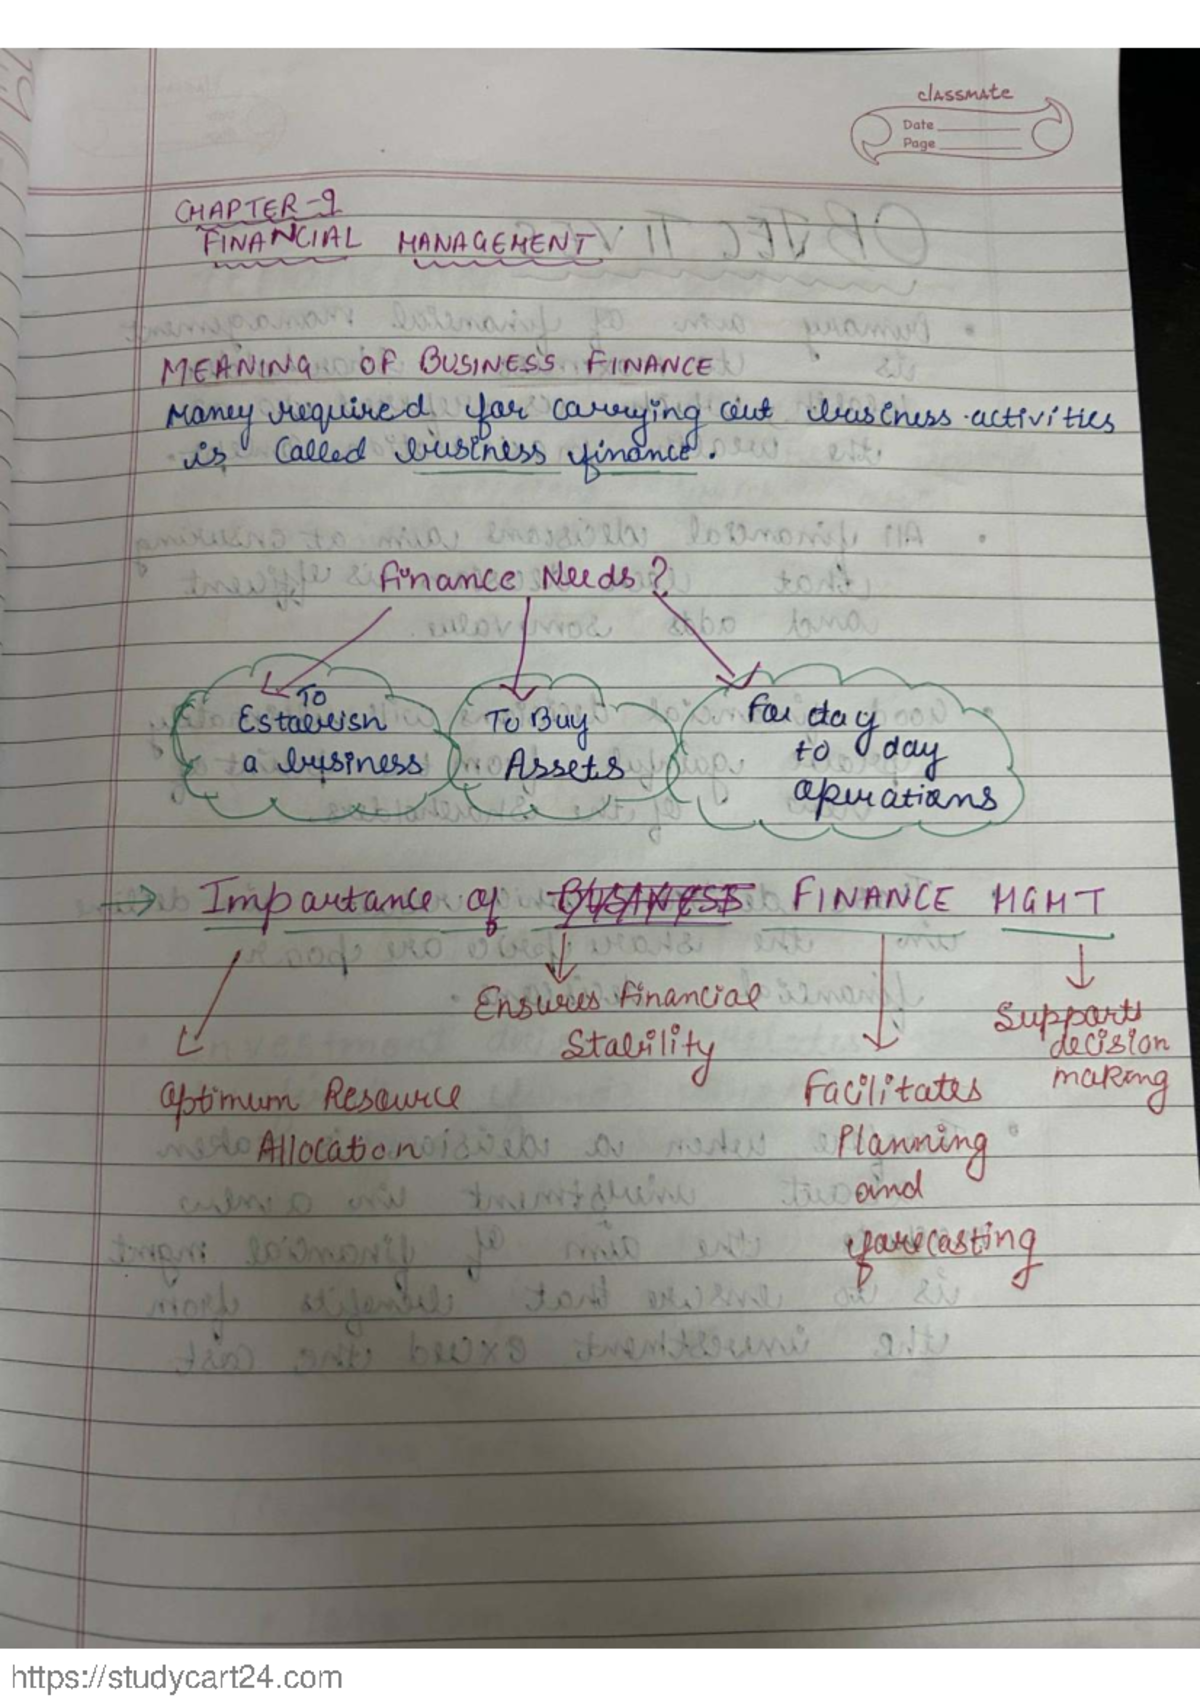 classmate
Date
Page
CHAPTER-9
FINANCIAL MANAGEMENT
MEANING OF BUSINESS FINANCE
Money required for carrying out business activities
is called business finance.
Finance Needs?
To
Establish
a business
To Buy
Assets
For day
to day
operations
→ Importance of BUSINESS FINANCE MGMT
Ensures Financial
Stability
Supports
decision
making
Optimum Resource
Allocation
Facilitates
Planning
and
forecasting
https://studycart24.com